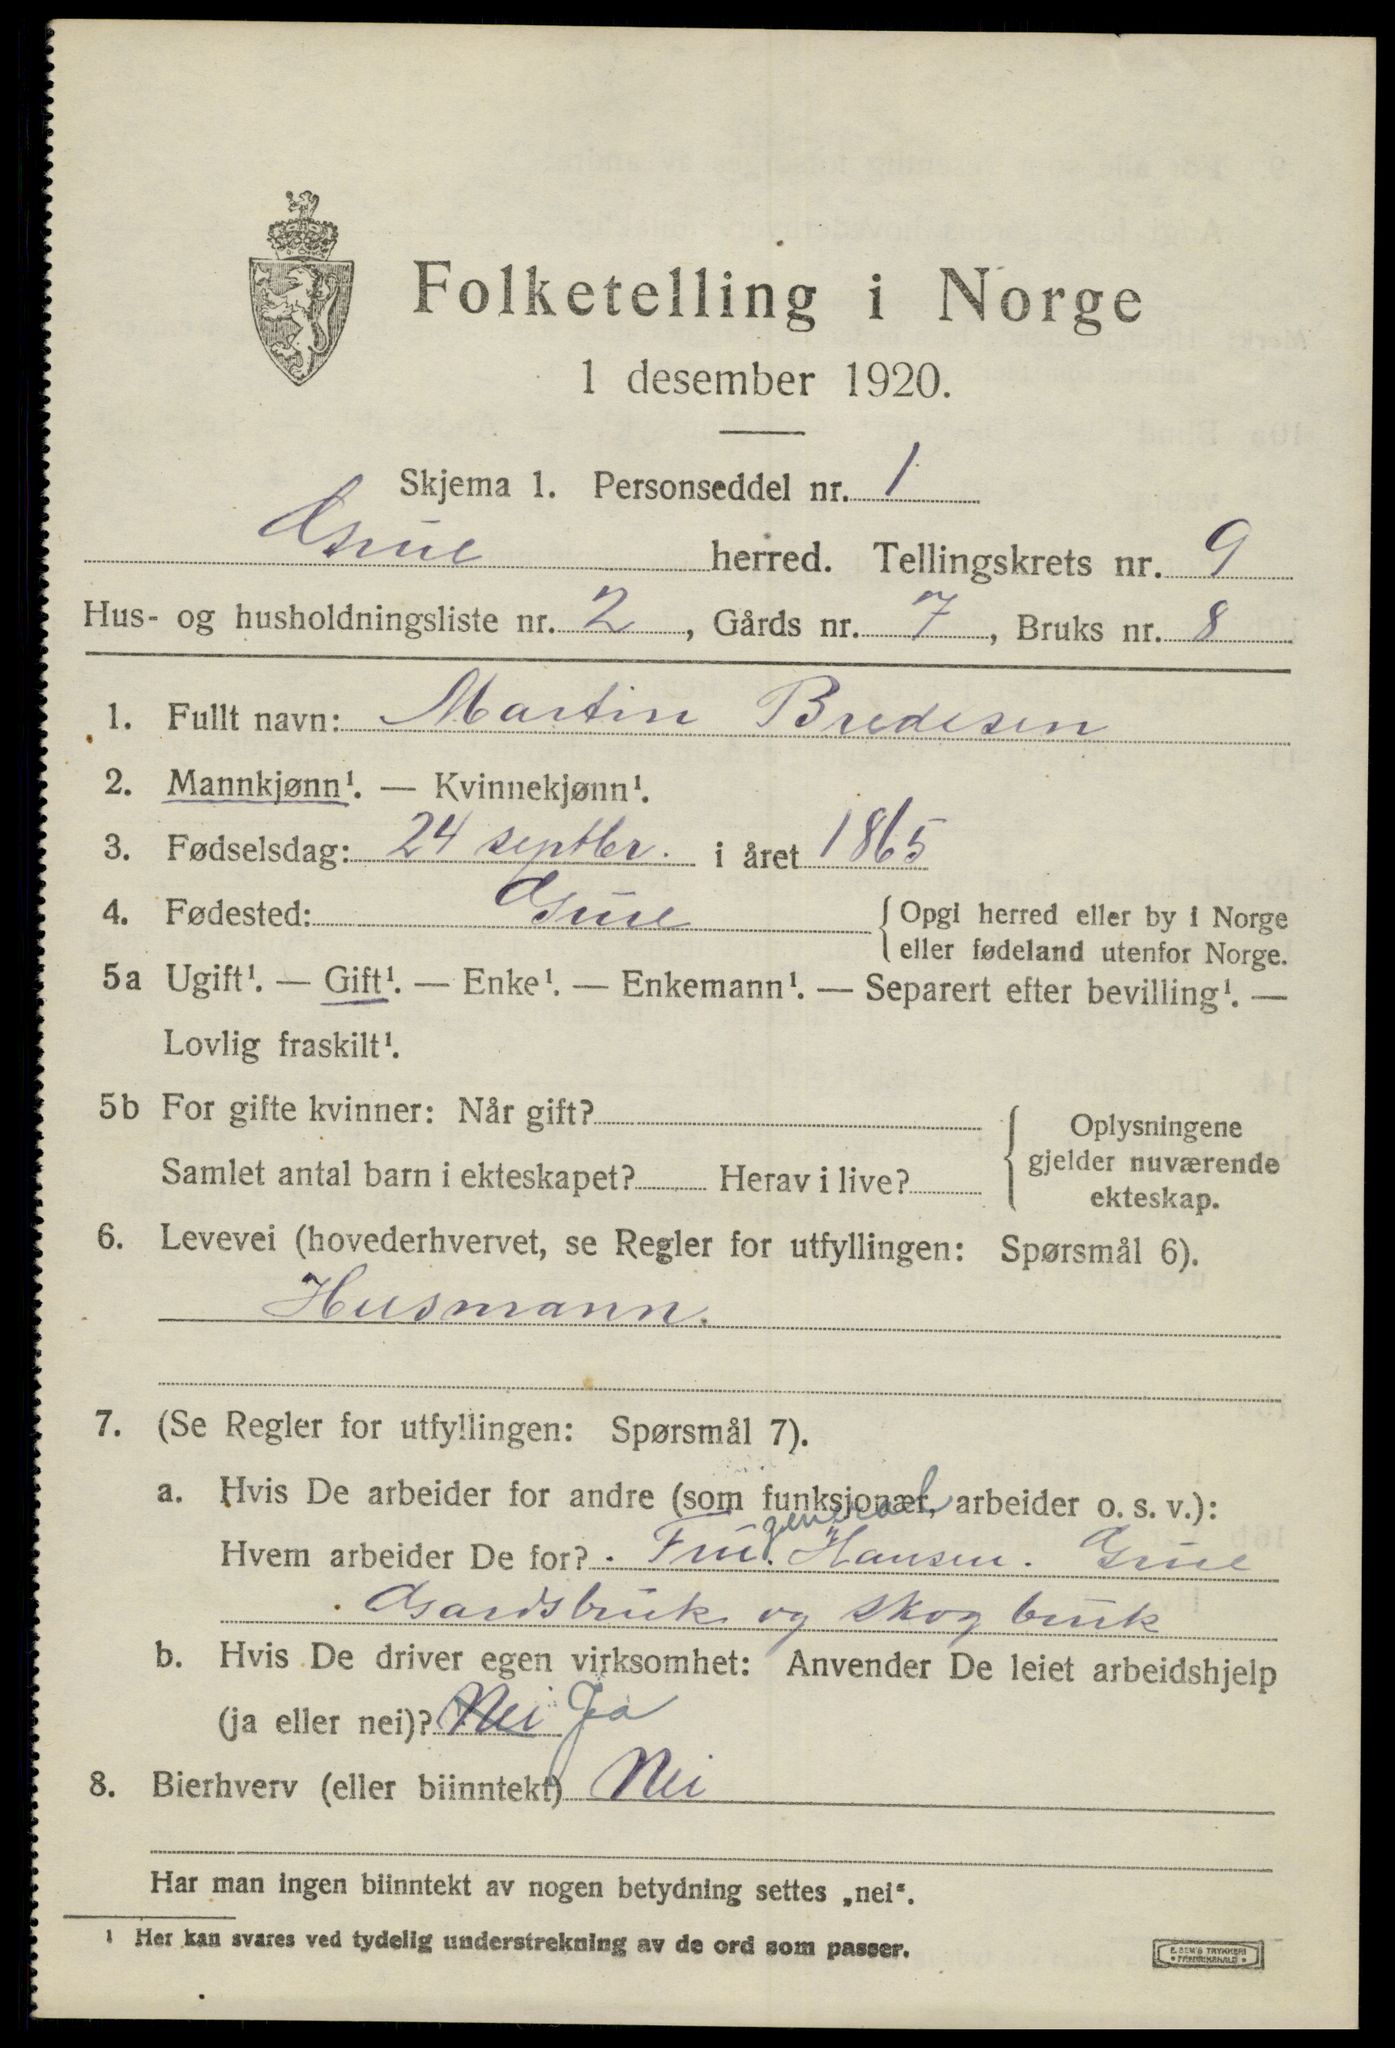 Folketelling i Norge
1 desember 1920.
Skjema 1. Personseddel nr. 1
Grue herred. Tellingskrets nr. 9
Hus- og husholdningsliste nr. 2, Gårds nr. 7, Bruks nr. 8
1. Fullt navn: Martin Bredesen
2. Mannkjønn¹. — Kvinnekjønn¹.
3. Fødselsdag: 24 septbr. i året 1865
4. Fødested: Grue { Opgi herred eller by i Norge
eller fødeland utenfor Norge.
5a Ugift¹. — Gift¹. — Enke¹. — Enkemann¹. — Separert efter bevilling¹. —
Lovlig fraskilt¹.
5b For gifte kvinner: Når gift?
Samlet antal barn i ekteskapet? Herav i live?
{ Oplysningene
gjelder nuværende
ekteskap.
6. Levevei (hovederhvervet, se Regler for utfyllingen: Spørsmål 6).
Husmann.
7. (Se Regler for utfyllingen: Spørsmål 7).
a. Hvis De arbeider for andre (som funksjonær, arbeider o. s. v.):
general
Hvem arbeider De for? Fru Hansen. Grue
Gardsbruk og skogbruk
b. Hvis De driver egen virksomhet: Anvender De leiet arbeidshjelp
(ja eller nei)? Nei Ja
8. Bierhverv (eller biinntekt) Nei
Har man ingen biinntekt av nogen betydning settes „nei“.
¹ Her kan svares ved tydelig understrekning av de ord som passer.
E. SEM'S TRYKKERI
FREDRIKSHALD